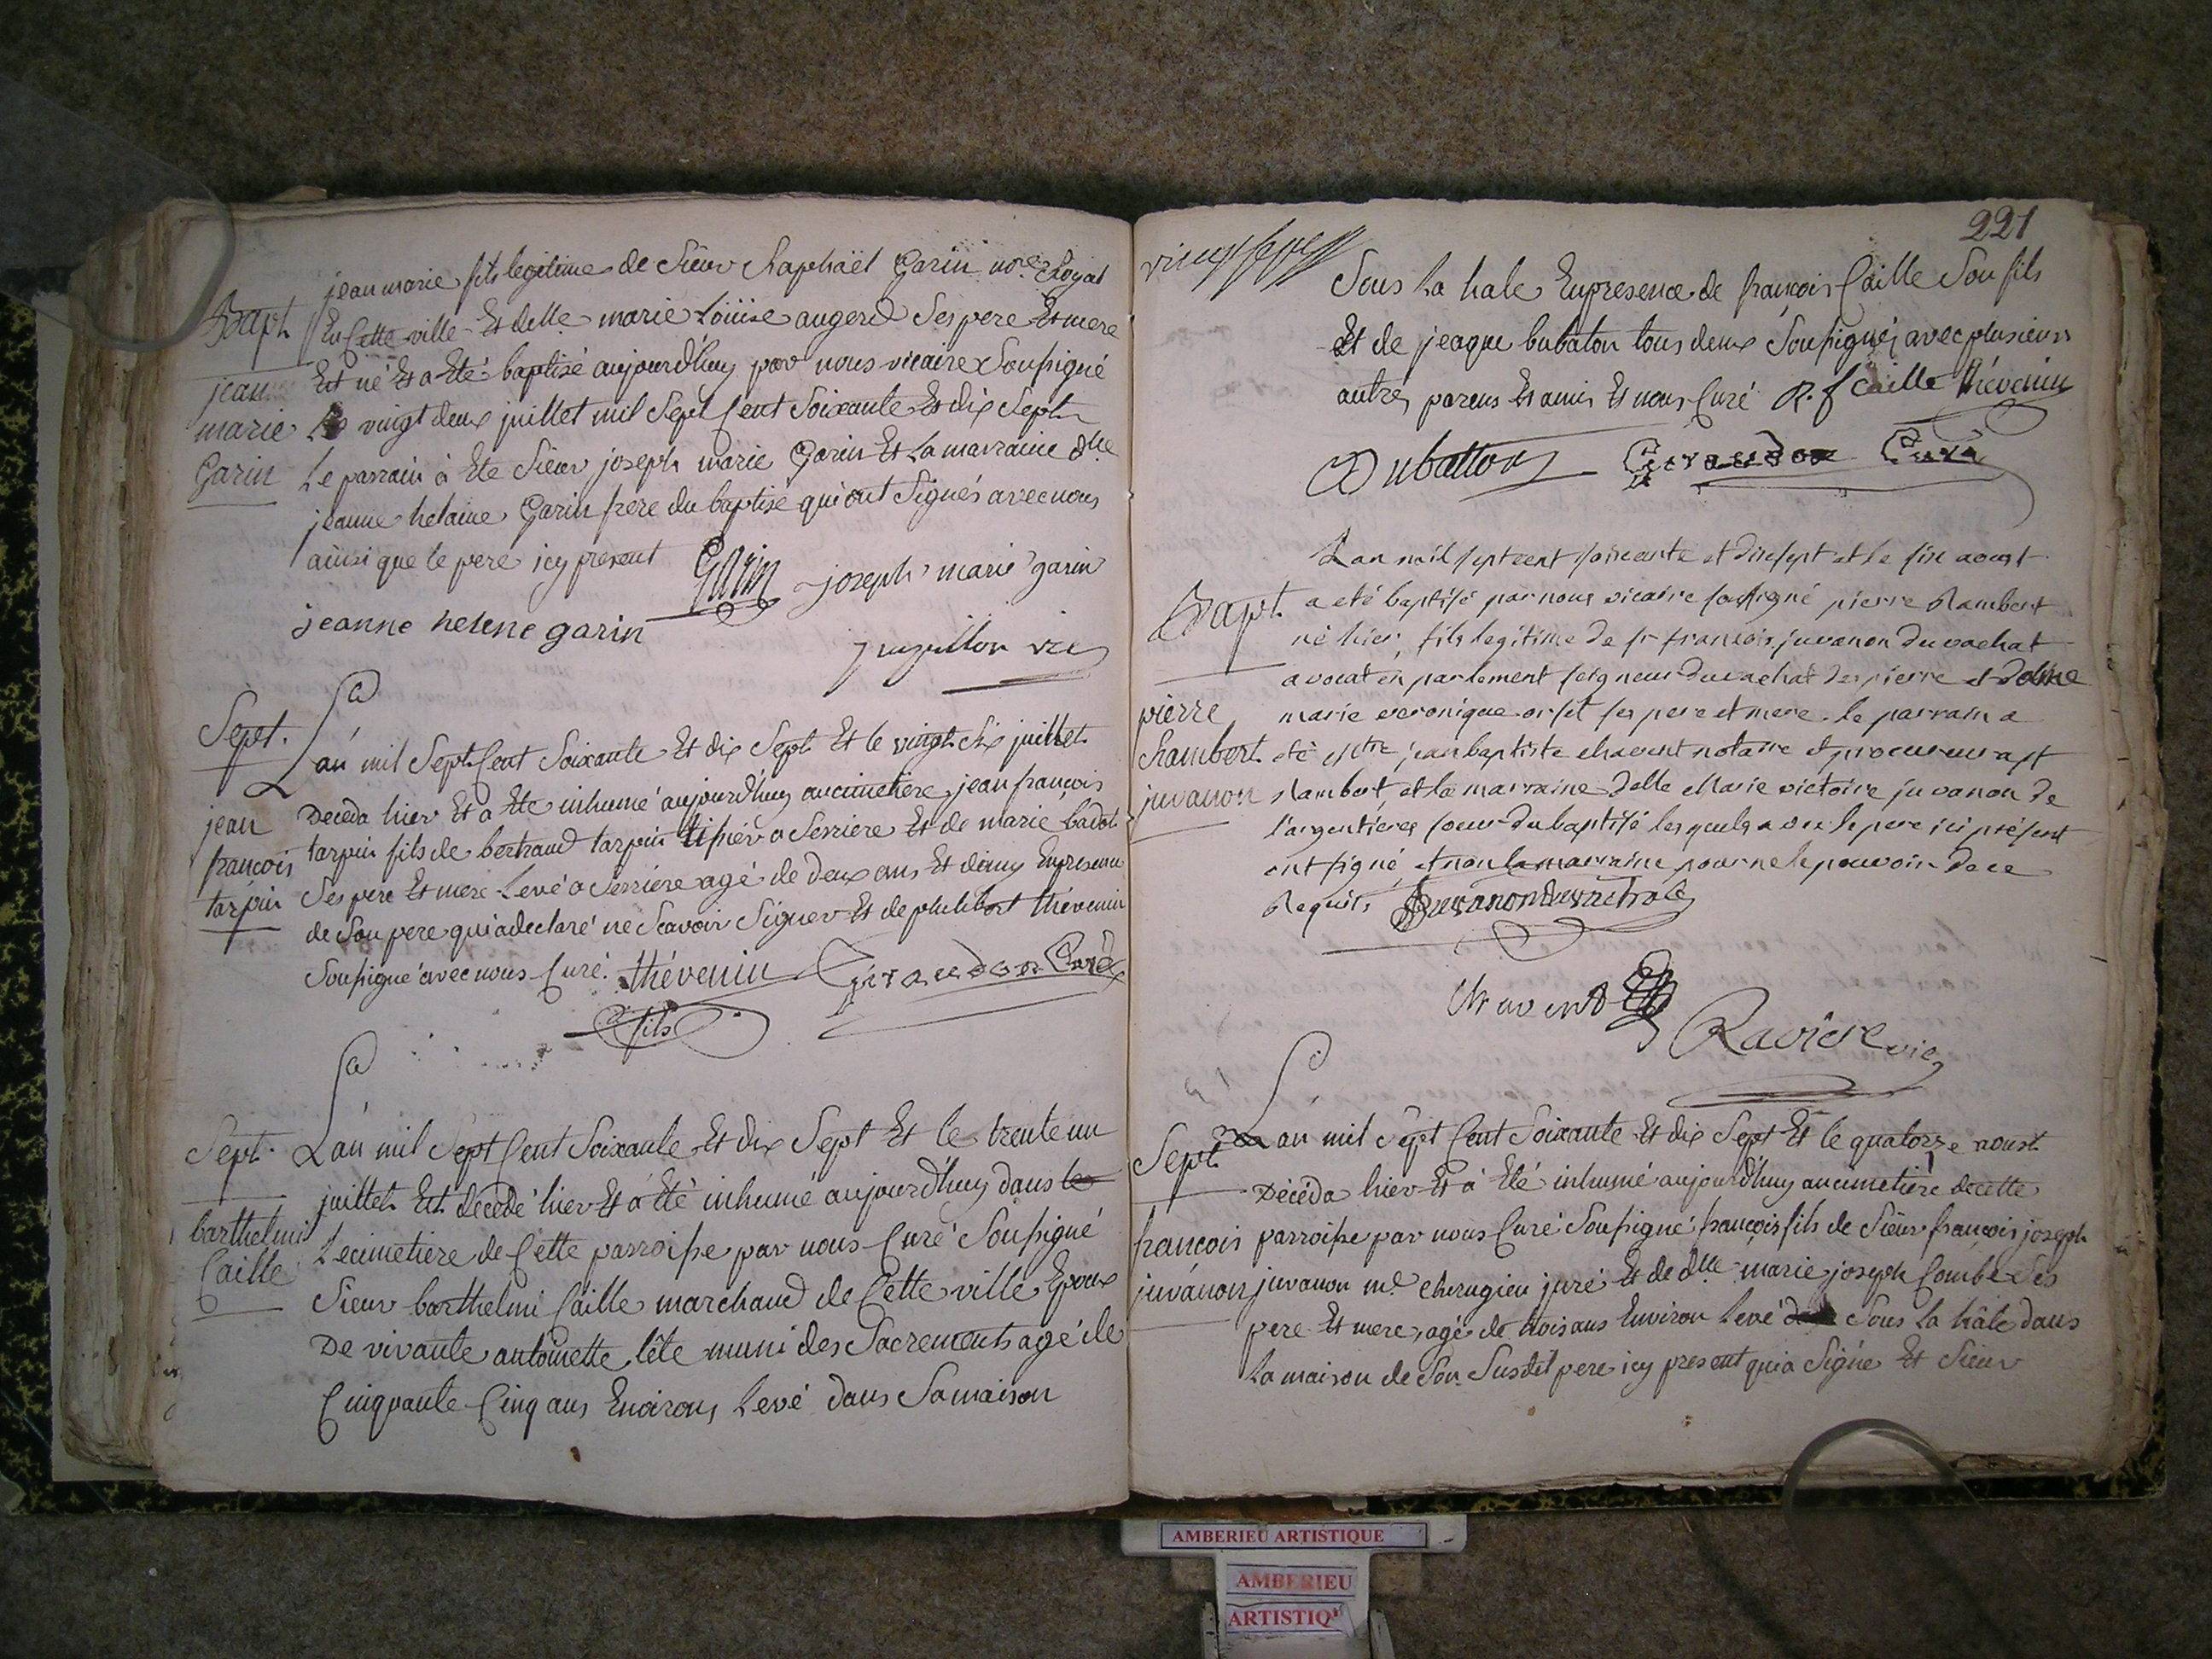 jean marie fils legitime de Sieur Raphaël Garin no.re Royal
Bapt En Cette ville Et delle marie Loüise augerd Ses pere Et mere
jean Est né Et a Eté baptisé aujourd'huy par nous vicaire Soussigné
marie Le vingt deux juillet mil Sept Cent Soixante Et dix Sept
Garin Le parrain à Ete Sieur joseph marie Garin Et La marraine dlle
jeanne helaine Garin frere du baptisé qui ont Signés avec nous
ainsi que le pere icy present Garin joseph marie garin
jeanne helene garin
vic
Sept. L'an mil Sept Cent Soixante Et dix Sept Et le vingt Six juillet
jean Deceda hier Et a Ete inhumé aujourd'huy au cimetiere jean françois
francois tarpin fils de bertrand tarpin tissier a Serriere Et de marie badot
tarpin Ses pere Et mere Levé a Serriere agé de deux ans Et demy En presence
de Son pere qui a declaré ne Scavoir Signer Et de philibert thévenin
Soussigné avec nous Curé. thévenin Giraudon Curé
fils
Sept. L'an mil Sept Cent Soixante Et dix Sept Et le trente un
juillet Est décedé hier Et a Eté inhumé aujourd'huy dans le
barthelmi Le cimetiere de Cette parroisse par nous Curé Soussigné
Caille Sieur barthelmi Caille marchand de Cette ville Epoux
De vivante antoinette tête muni des Sacrements agé de
Cinquante Cinq ans Environs Levé dans Sa maison
221
Sous La hale En presence de françois Caille Son fils
Et de jeaque bubaton tous deux Soussignés avec plusieurs
autres parens Et amis Et nous Curé R. f Caille thévenin
Dubatton Giraudon Curé
L'an mil sept cent soixante et dix sept et le six aoust
Bapt. a eté baptisé par nous vicaire soussigné pierre Rambert
né hier, fils legitime de sr francois juvanon du vachat
avocat en parlement seigneur du vachat des pierre et dame
pierre marie veronique orset ses pere et mere. le parrain a
Rambert eté jean baptiste chavent notaire et procureur a st
juvanon Rambert, et la marraine delle Marie victoire juvanon de
l'argentieres soeur du baptisé lesquels avec le pere ici présent
ont signé, et non la marraine pour ne le pouvoir de ce
Requis
Chavent
Ravier vic
Sept. L'an mil Sept Cent Soixante Et dix Sept Et le quatorze aoust
Décéda hier Et à Eté inhumé aujourd'huy au cimetiere de cette
francois parroisse par nous Curé Soussigné françois fils de Sieur françois joseph
juvanon juvanon me. Cherugien juré Et de dlle marie joseph Combe Ses
pere Et mere, agé de trois ans Environ Levé Sous La hâle dans
La maison de Son Susdit pere icy present qui a Signé Et Sieur
AMBERIEU ARTISTIQUE
AMBERIEU
ARTISTIQ